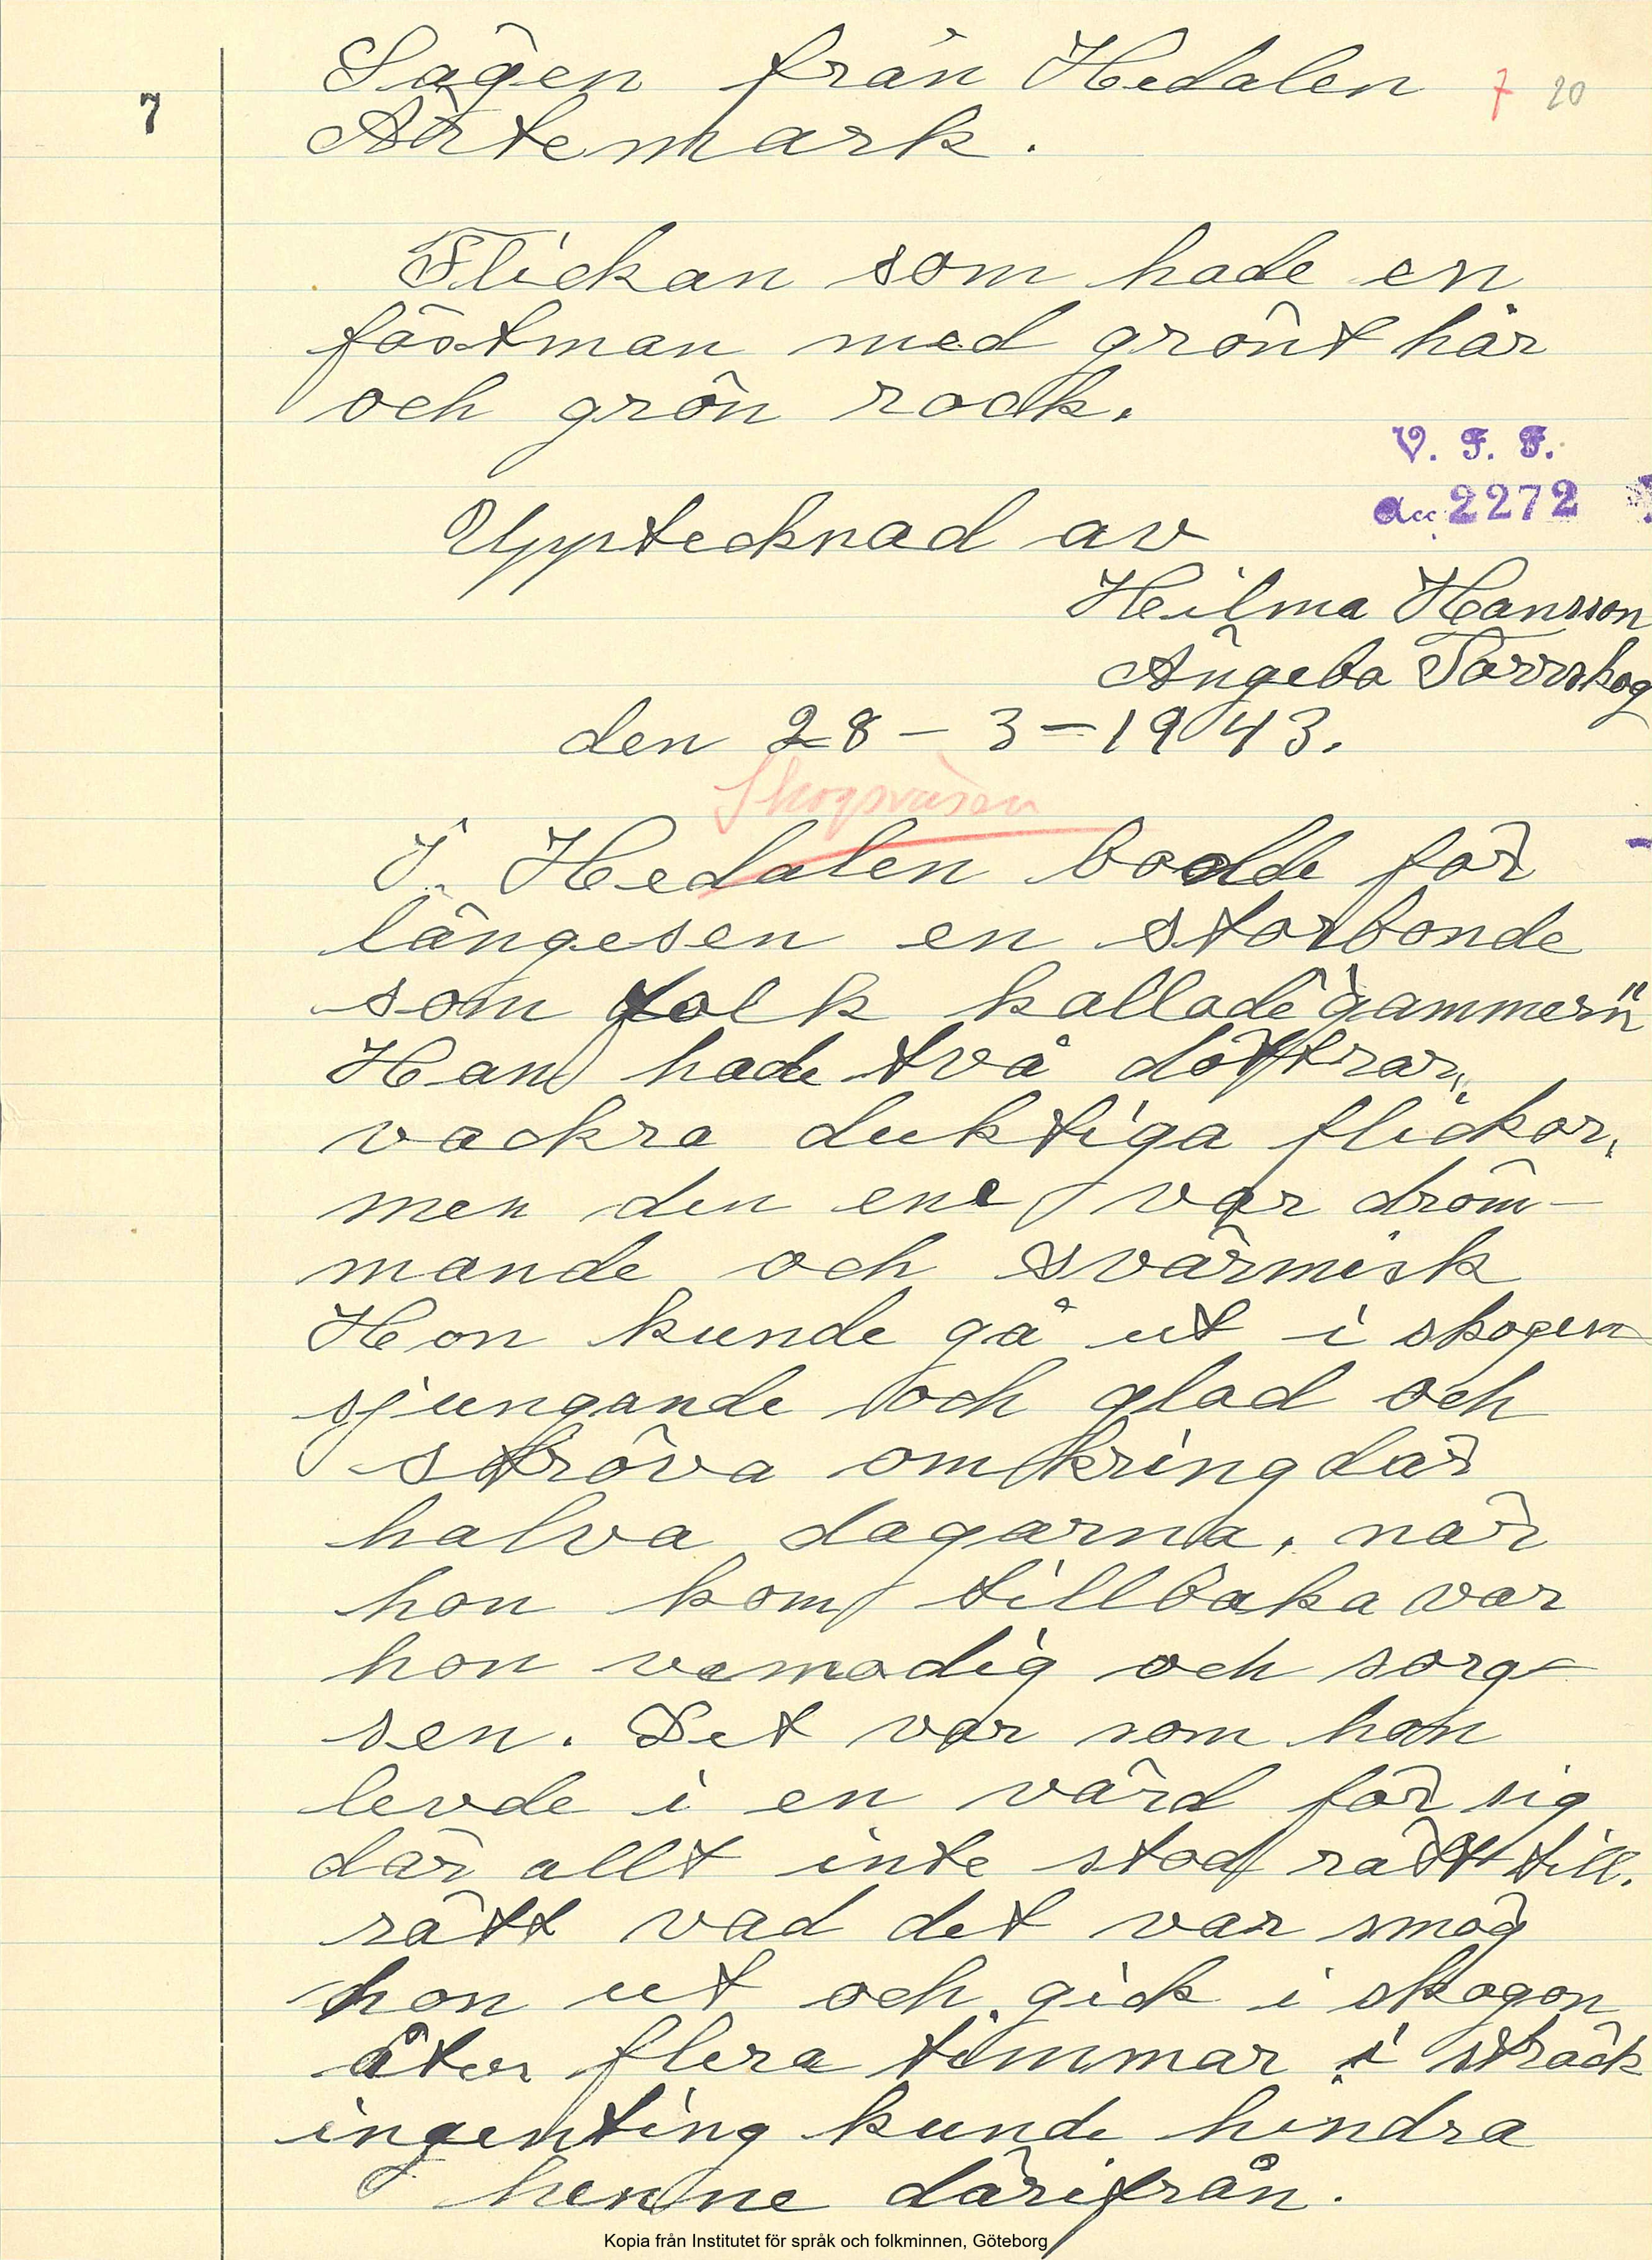 7
Sägen från Hedalen
7 20
Ärtemark.
Flickan som hade en
fästman med grönt hår
och grön rock.
V. F. F.
acc. 2272
Upptecknad av
Heilma Hansson
Ängebo Torrskog
den 28 - 3 - 1943.
Skogsväsen
I Hedalen bodde för
längesen en storbonde
som folk kallade "gammern"
Han hade två döttrar,
vackra duktiga flickor,
men den ene var dröm-
mande och svärmisk
Hon kunde gå ut i skogen
sjungande och glad och
ströva omkring där
halva dagarna, när
hon kom tillbaka var
hon vemodig och sorg-
sen. Det var som hon
levde i en värd för sig
där allt inte stod rätt till.
rätt vad det var smög
hon ut och gick i skogon
åter flera timmar i sträck
ingenting kunde hindra
henne därifrån.
Kopia från Institutet för språk och folkminnen, Göteborg